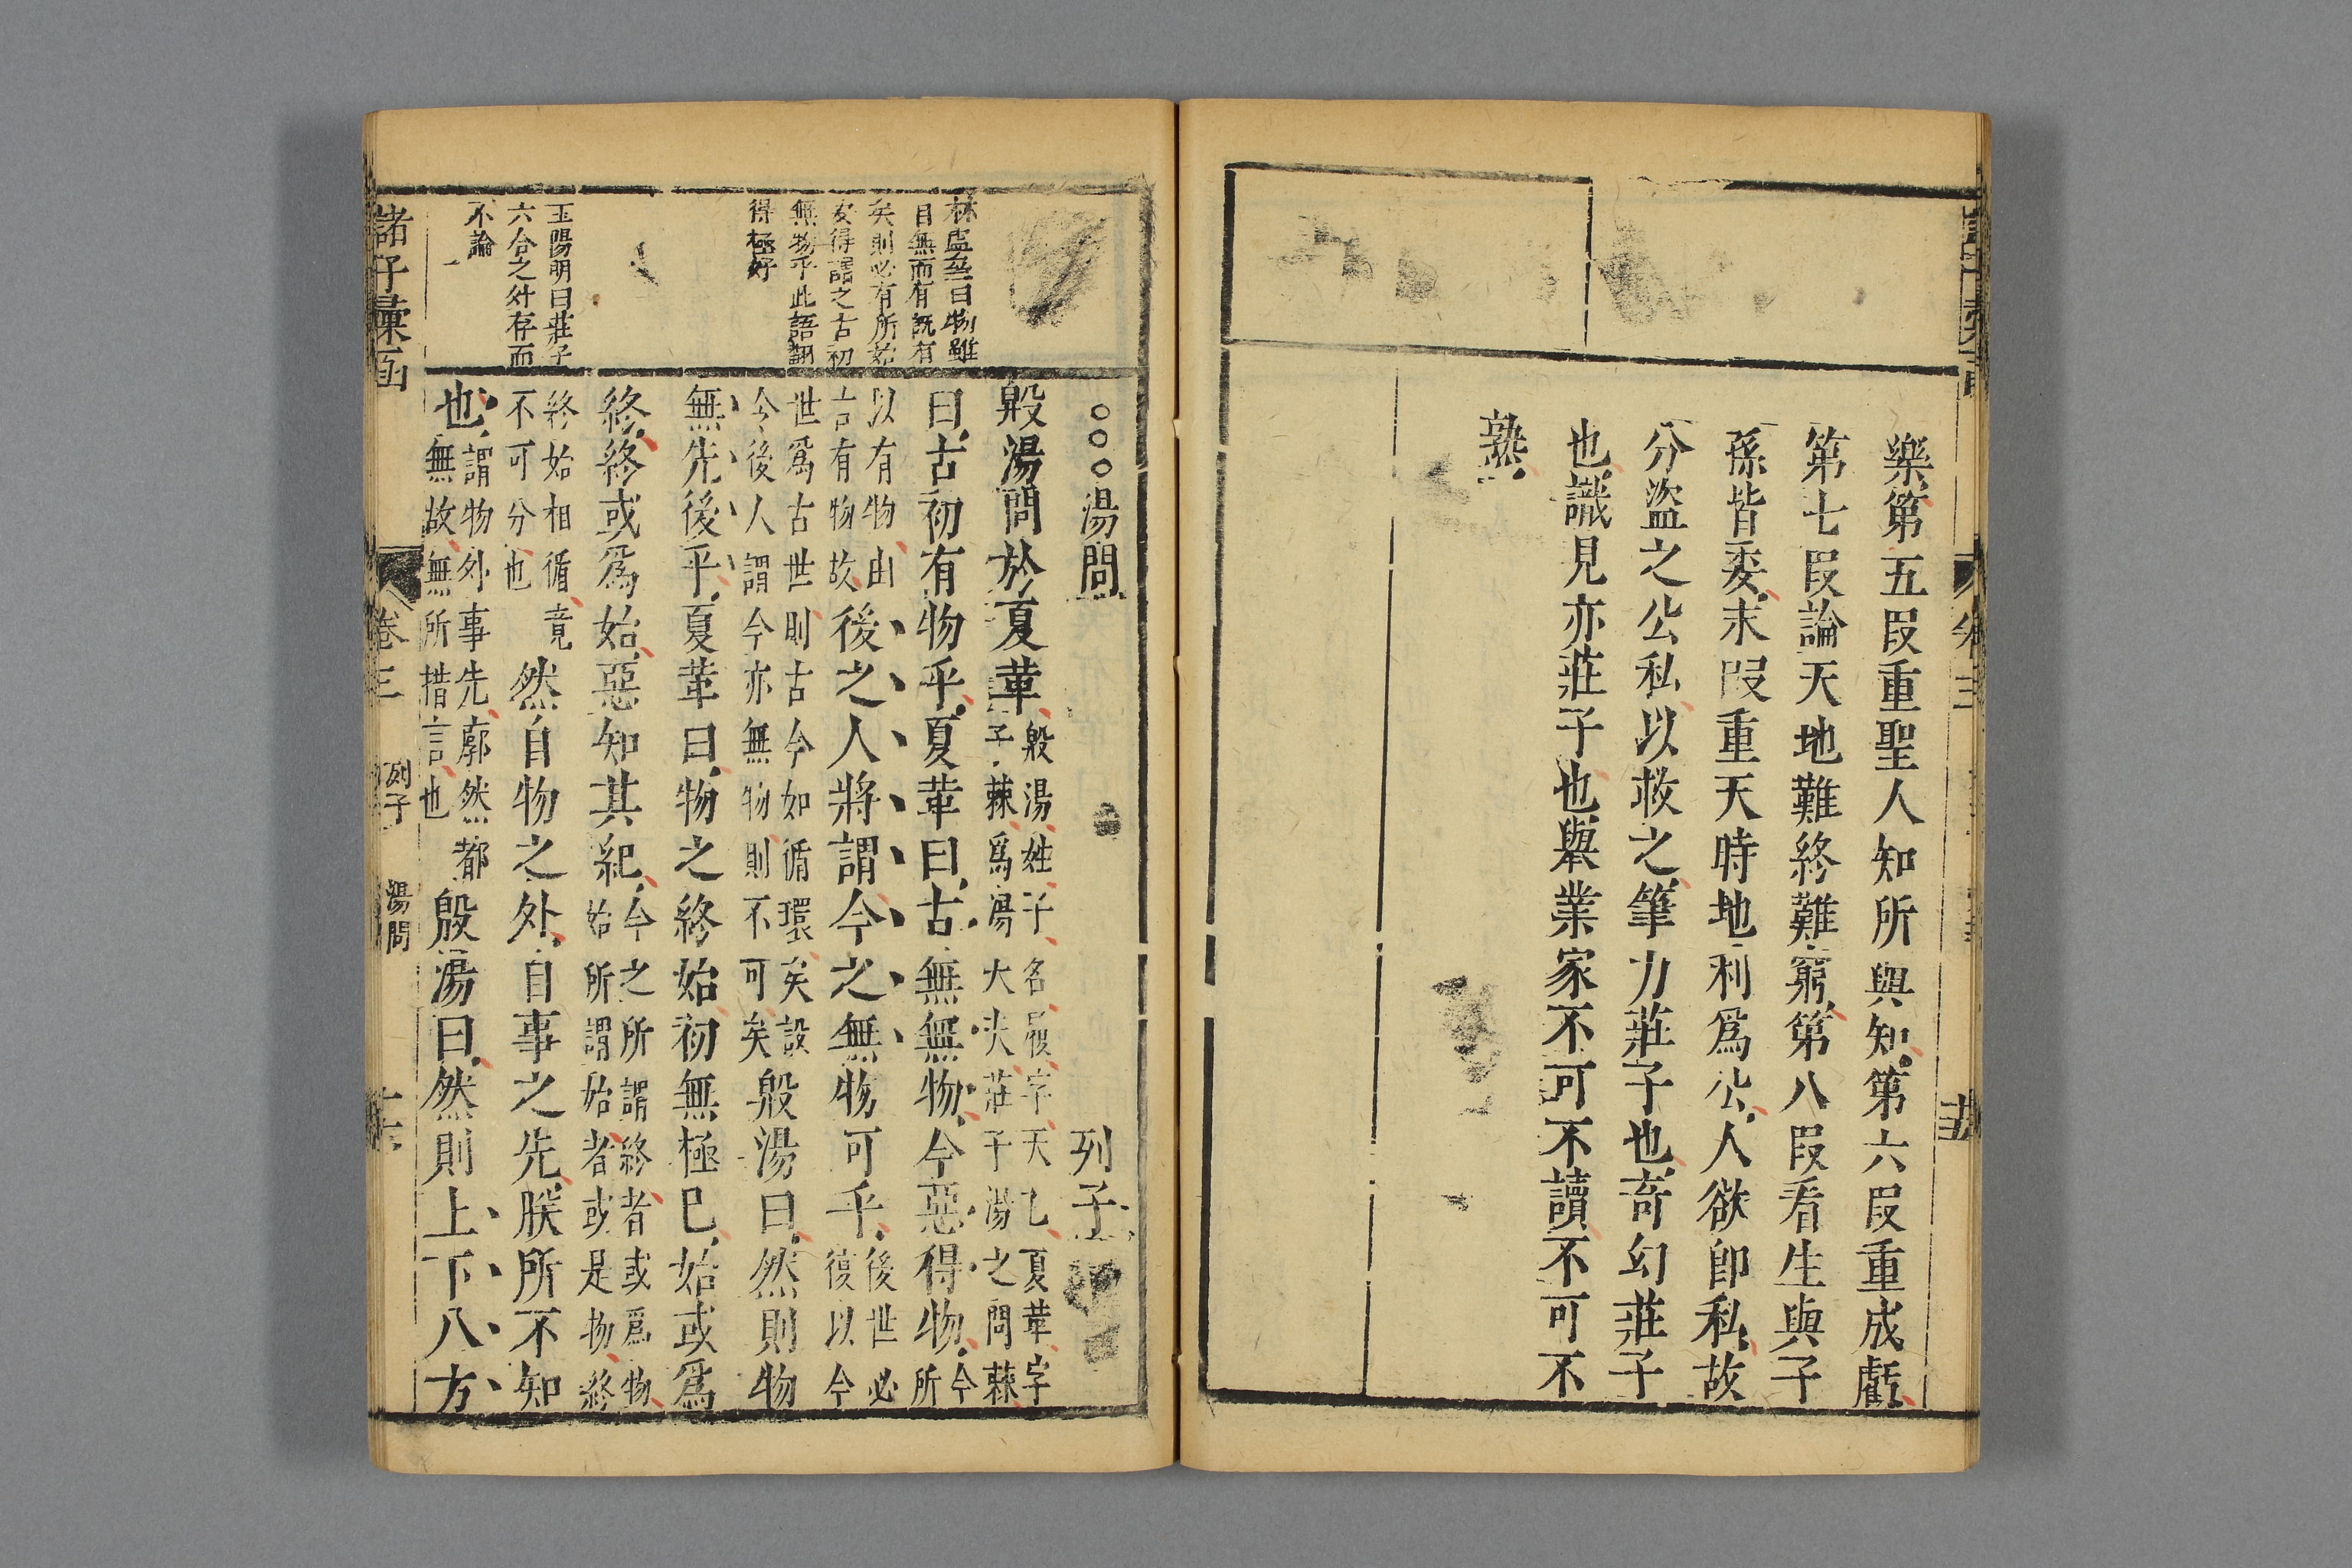 樂第五叚重聖人知所與知第六叚重成虧
第七叚論天地難終難窮第八叚看生與子
孫皆委末叚重天時地利爲公人欲卽私故
分盜之公私以救之筆力莊子也奇幻莊子
也識見亦莊子也與業家不可不讀不可不
熟
林盧至曰物雖
目無而有既有
矣則必有所始
安得謂之古初
無物乎此語翻
得極好
王陽明曰莊子
六合之外存而
不論
湯問 列子
殷湯問於夏葦
殷湯姓子名履字天乙夏葦字
子棘爲湯大夫莊子湯之問棘
曰古初有物乎夏葦曰古無無物今惡得物
今
所
以有物由
古有物故
後之人將謂今之無物可乎
後世必
復以今
世爲古世則古今如循環矣設
今後人謂今亦無物則不可矣
殷湯曰然則物
無先後乎夏葦曰物之終始初無極已始或爲
終終或爲始惡知其紀
今之所謂終者或爲物
始所謂始者或是物終
終始相循竟
不可分也
然自物之外自事之先朕所不知
也
謂物外事先廓然都
無故無所措言也
殷湯曰然則上下八方
諸子彙函
卷三
列子
湯問